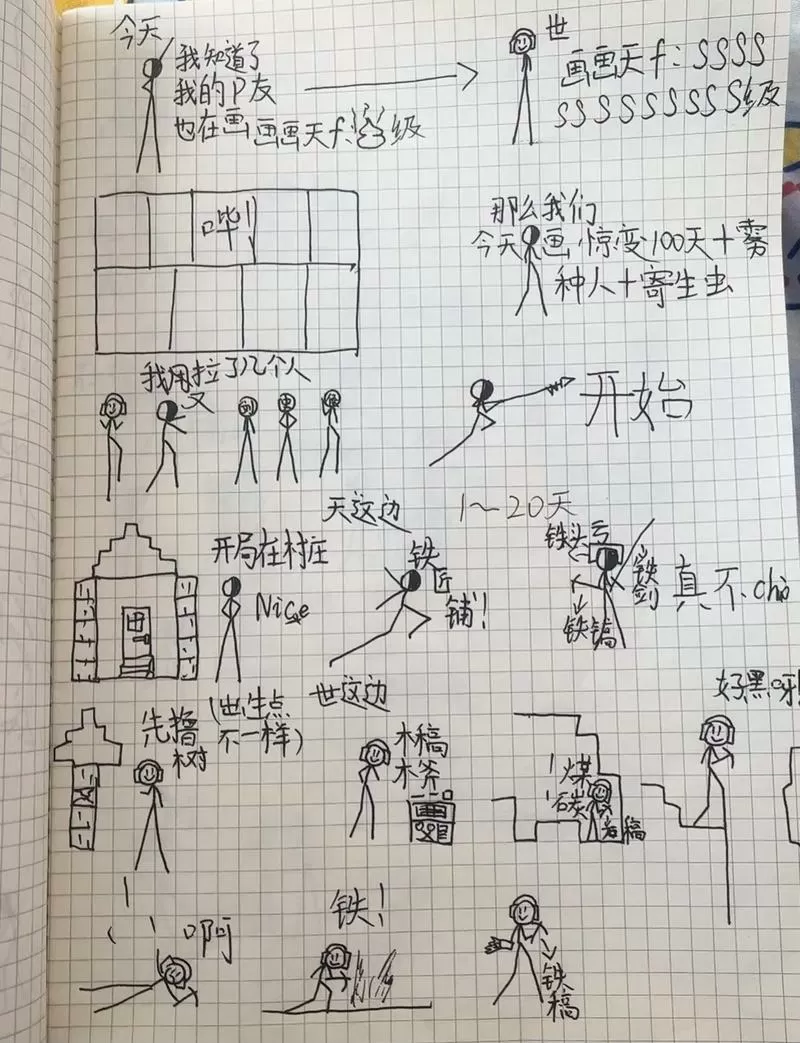 今天
我知道了
我的P友
也在画画画天f:级
世
画画天f:SSSS
SSSSSSSSS级
哔!
那么我们
今天画惊变100天+雾
种人+寄生虫
我又拉了几个人
开始
天这边
1~20天
开局在村庄
Nice
铁
匠
铺!
铁头亏
铁
剑
铁镐
真不chǒ
世这边
(出生点
不一样)
先撸
树
木稿
木斧
煤
石炭
岩稿
好黑呀!
啊
铁!
铁
稿